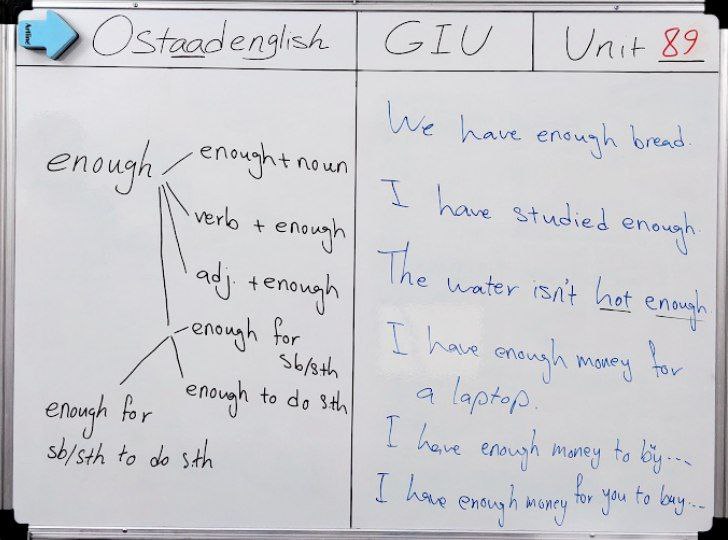 Artline
Ostaadenglish
GIU
Unit 89
enough
enough + noun
verb + enough
adj. + enough
enough for
sb/sth
enough to do s.th
enough for
sb/sth to do s.th
We have enough bread.
I have studied enough.
The water isn't hot enough.
I have enough money for
a laptop.
I have enough money to buy...
I have enough money for you to buy...